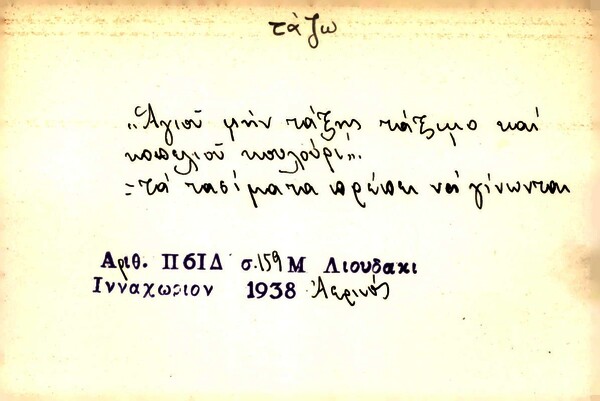 τάζω
„Ἁγιοῦ μήν τάξης τάξιμο καί
κοπελιοῦ κουλούρι".
=τά τασίματα πρέπει νά γίνωνται
Αριθ. Πϐ1Δ σ.159 Μ Λιουδακι
Ινναχωριον 1938 Ἀερινός